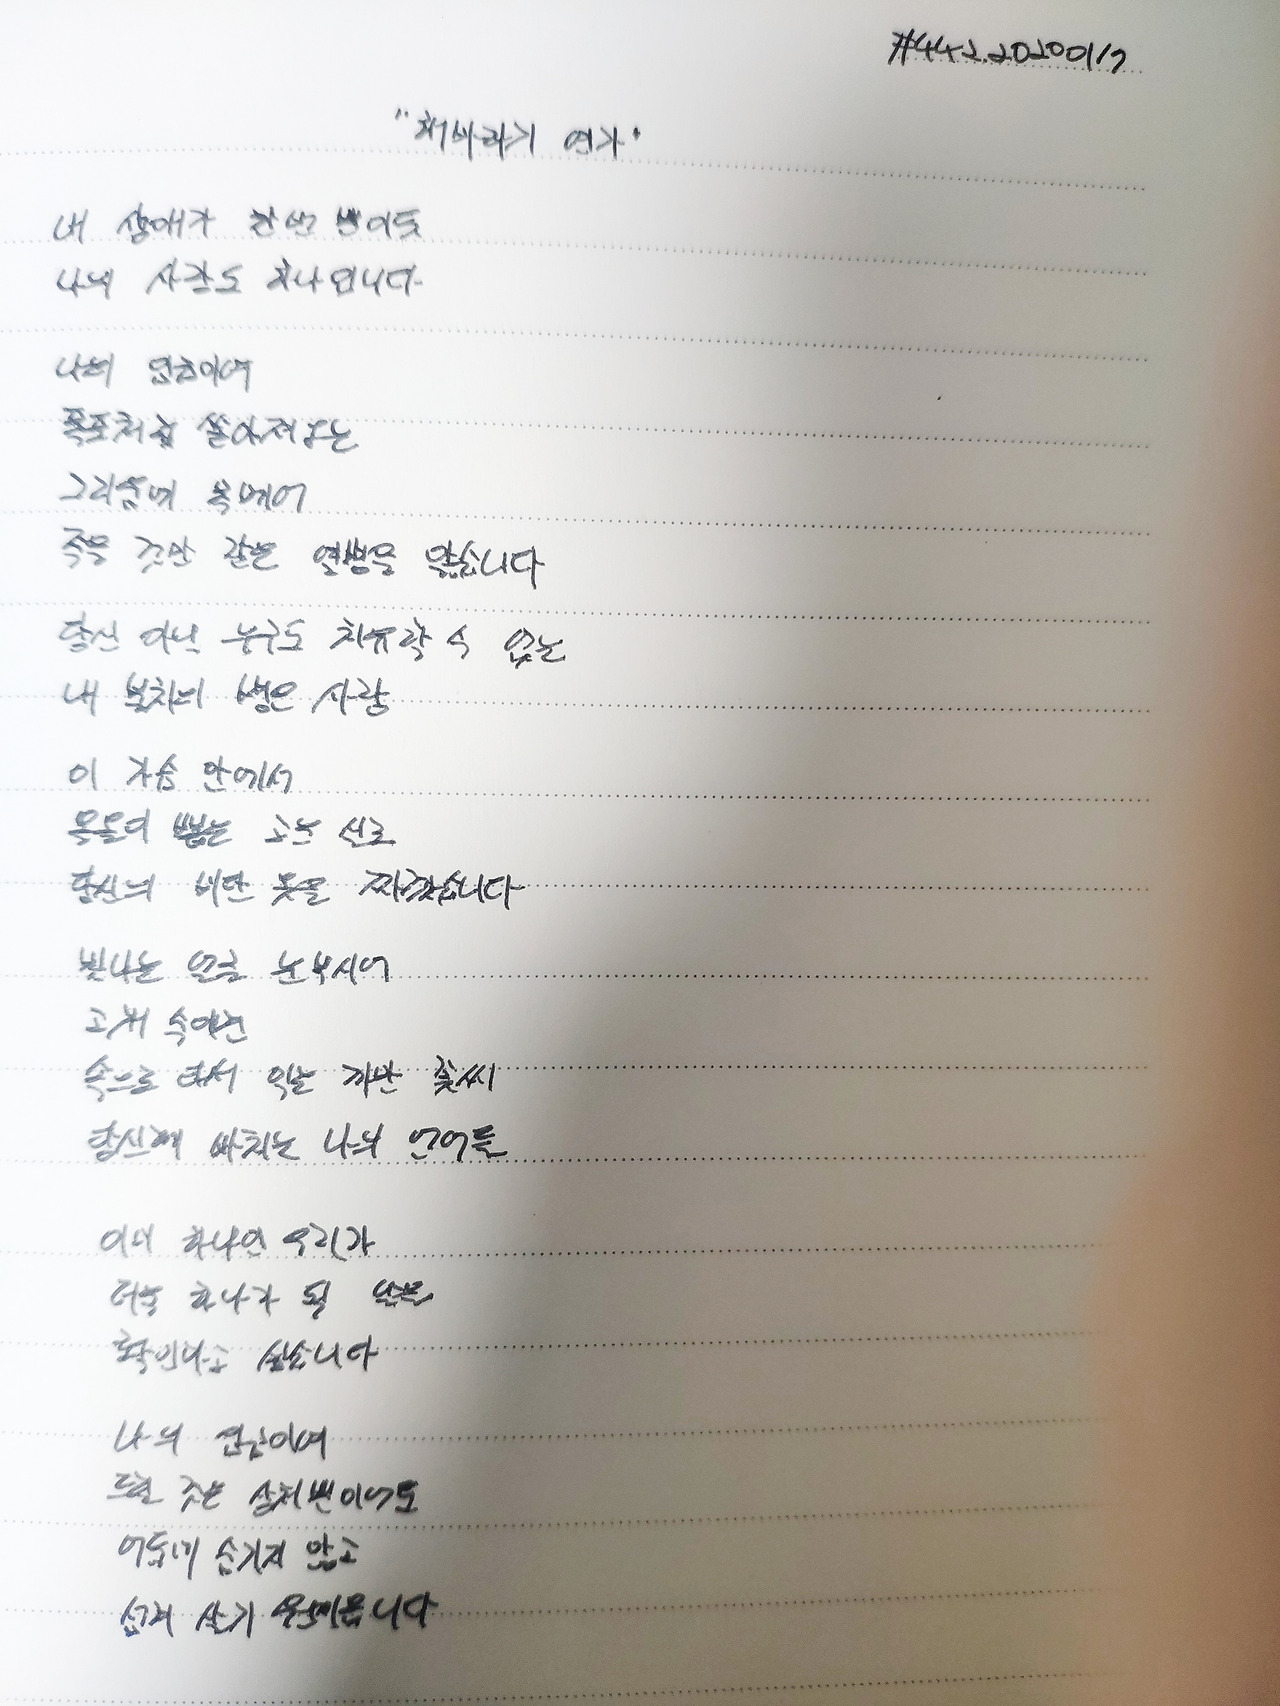 #442.20200117
"해바라기 연가"
내 생애가 한번 뿐이듯
나의 사랑도 하나입니다
나의 임금이여
폭포처럼 쏟아져오는
그리움에 목메어
죽을 것만 같은 열병을 앓습니다
당신 아닌 누구도 치유할 수 없는
내 불치의 병은 사랑
이 가슴 안에서
올올이 뽑은 고운 실로
당신의 비단 옷을 짜겠습니다
빛나는 얼굴 눈부시어
고개 숙이면
속으로 타서 익는 까만 꽃씨
당신께 바치는 나의 언어들
이미 하나인 우리가
더욱 하나가 될 날을
확인하고 싶습니다
나의 임금이여
드릴 것은 상처뿐이어도
어둠에 숨기지 않고
섬겨 살기 원이옵니다